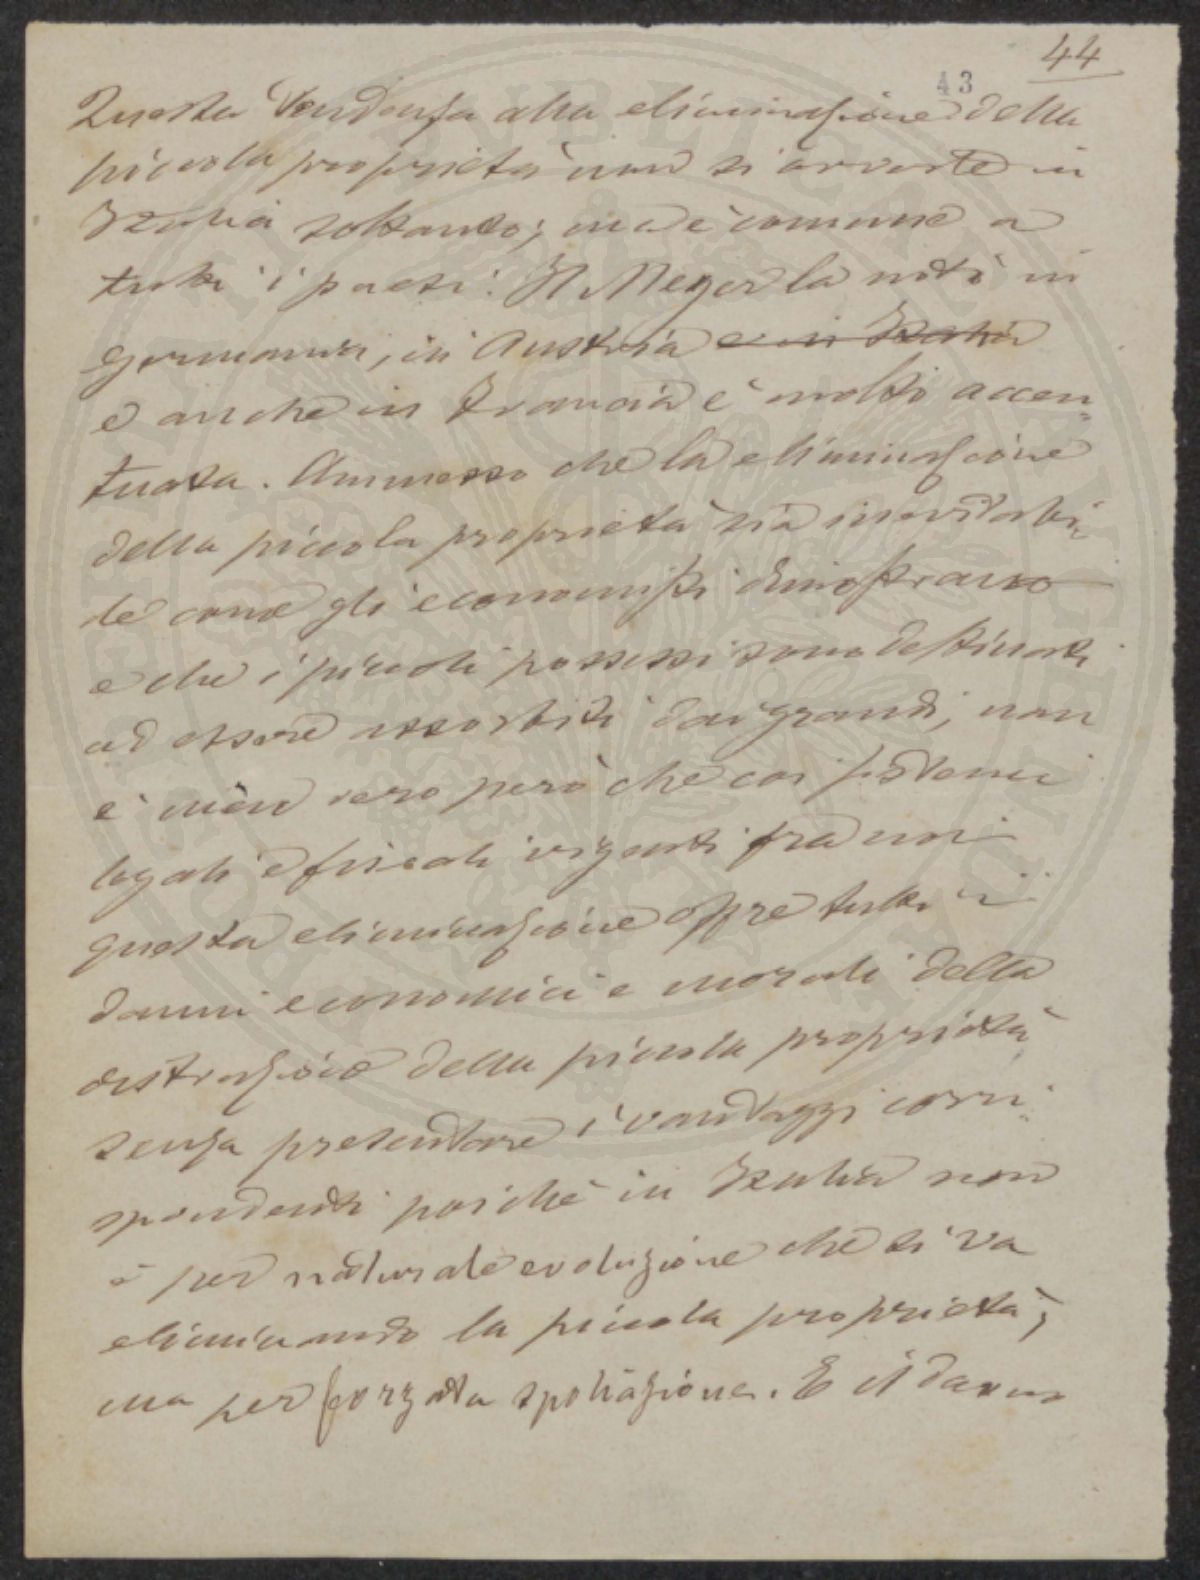 44
43
Questa tendenza alla eliminazione della
piccola proprietà non si avverte in
Italia soltanto; ma è comune a
tutti i paesi. Il Meyer la notò in
Germania, in Austria e in Italia
e anche in Francia è molto accen=
tuata. Ammesso che la eliminazione
della piccola proprietà sia inevitabi=
le come gli economisti dimostrano
e che i piccoli possessi sono destinati
ad essere assorbiti dai grandi, non
è men vero però che coi sistemi
legali e fiscali vigenti fra noi
questa eliminazione offre tutti i
danni economici e morali della
distruzione della piccola proprietà
senza presentare i vantaggi corri=
spondenti poiché in Italia non
è per naturale evoluzione che si va
eliminando la piccola proprietà,
ma per forzata spoliazione. E il danno